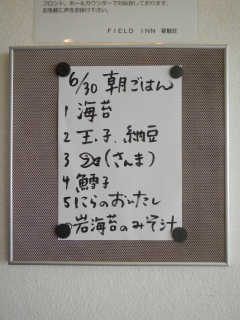 フロント、ホールカウンターで対応致しております。
お気軽に声をお掛け下さい。
FIELD INN
6/30 朝ごはん
1 海苔
2 玉子、納豆
3 (さんま)
4 鱈子
5 にらのおいたし
岩海苔のみそ汁